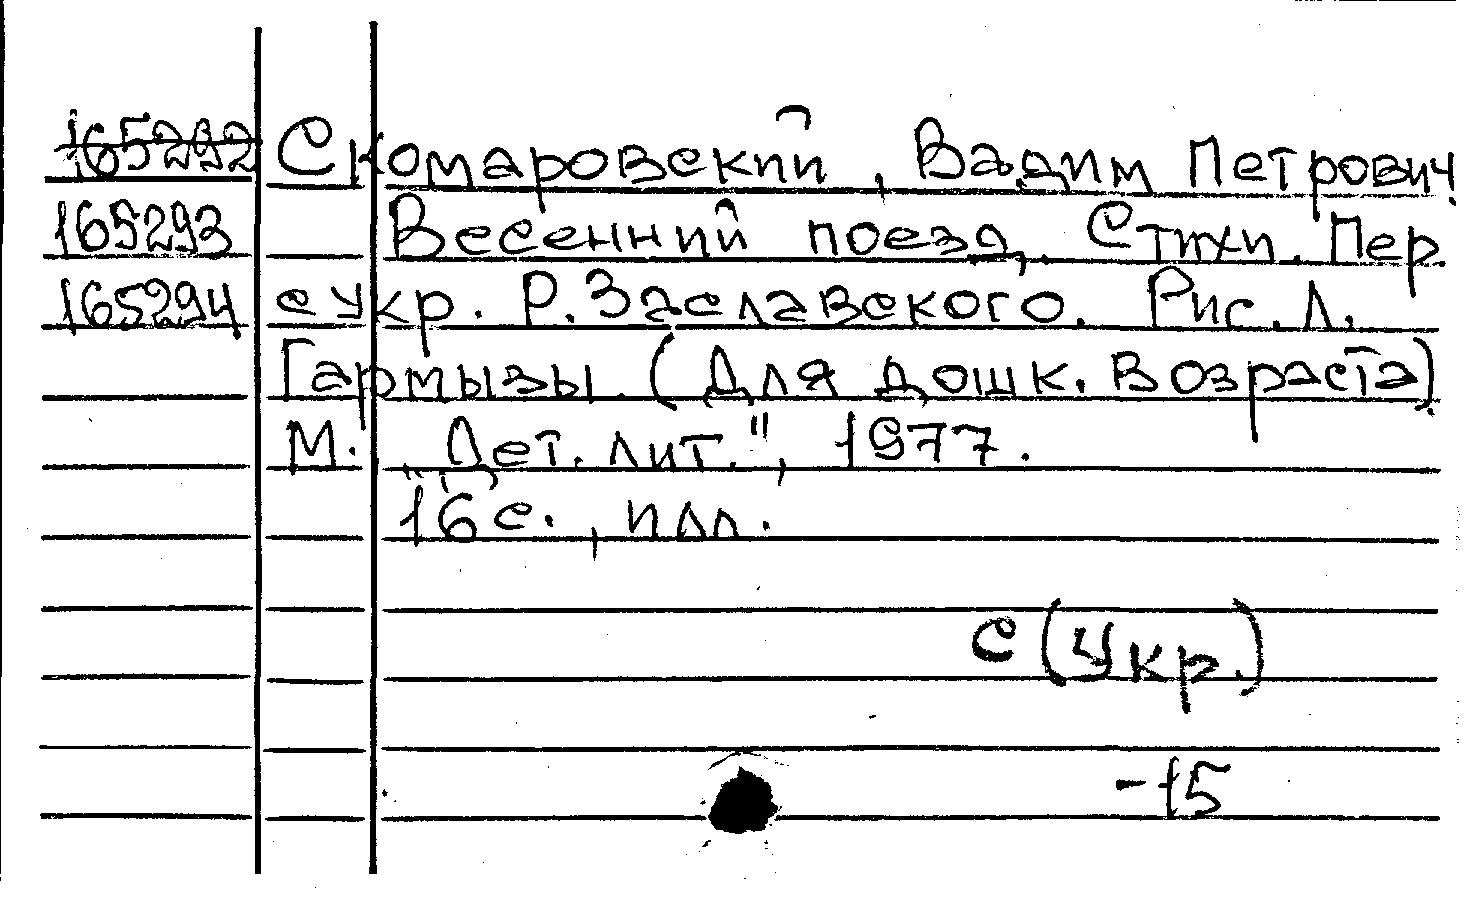 165292 Скомаровский, Вадим Петрович.
165293 Весенний поезд. Стихи. Пер.
165294 с укр. Р. Заславского. Рис. Л.
Гармызы. (Для дошк. возраста).
М. „Дет. лит.", 1977.
16 с., илл.
С(Укр.)
-15